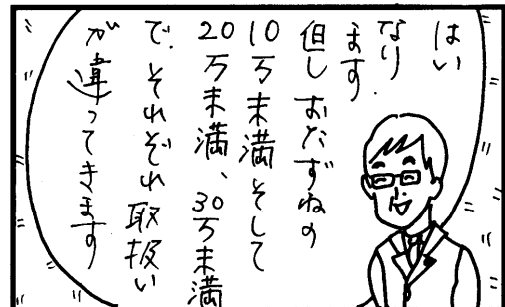 はい
なり
ます.
但し おたずねの
10万未満そして
20万未満、30万未満
で.それぞれ取扱い
が違ってきます